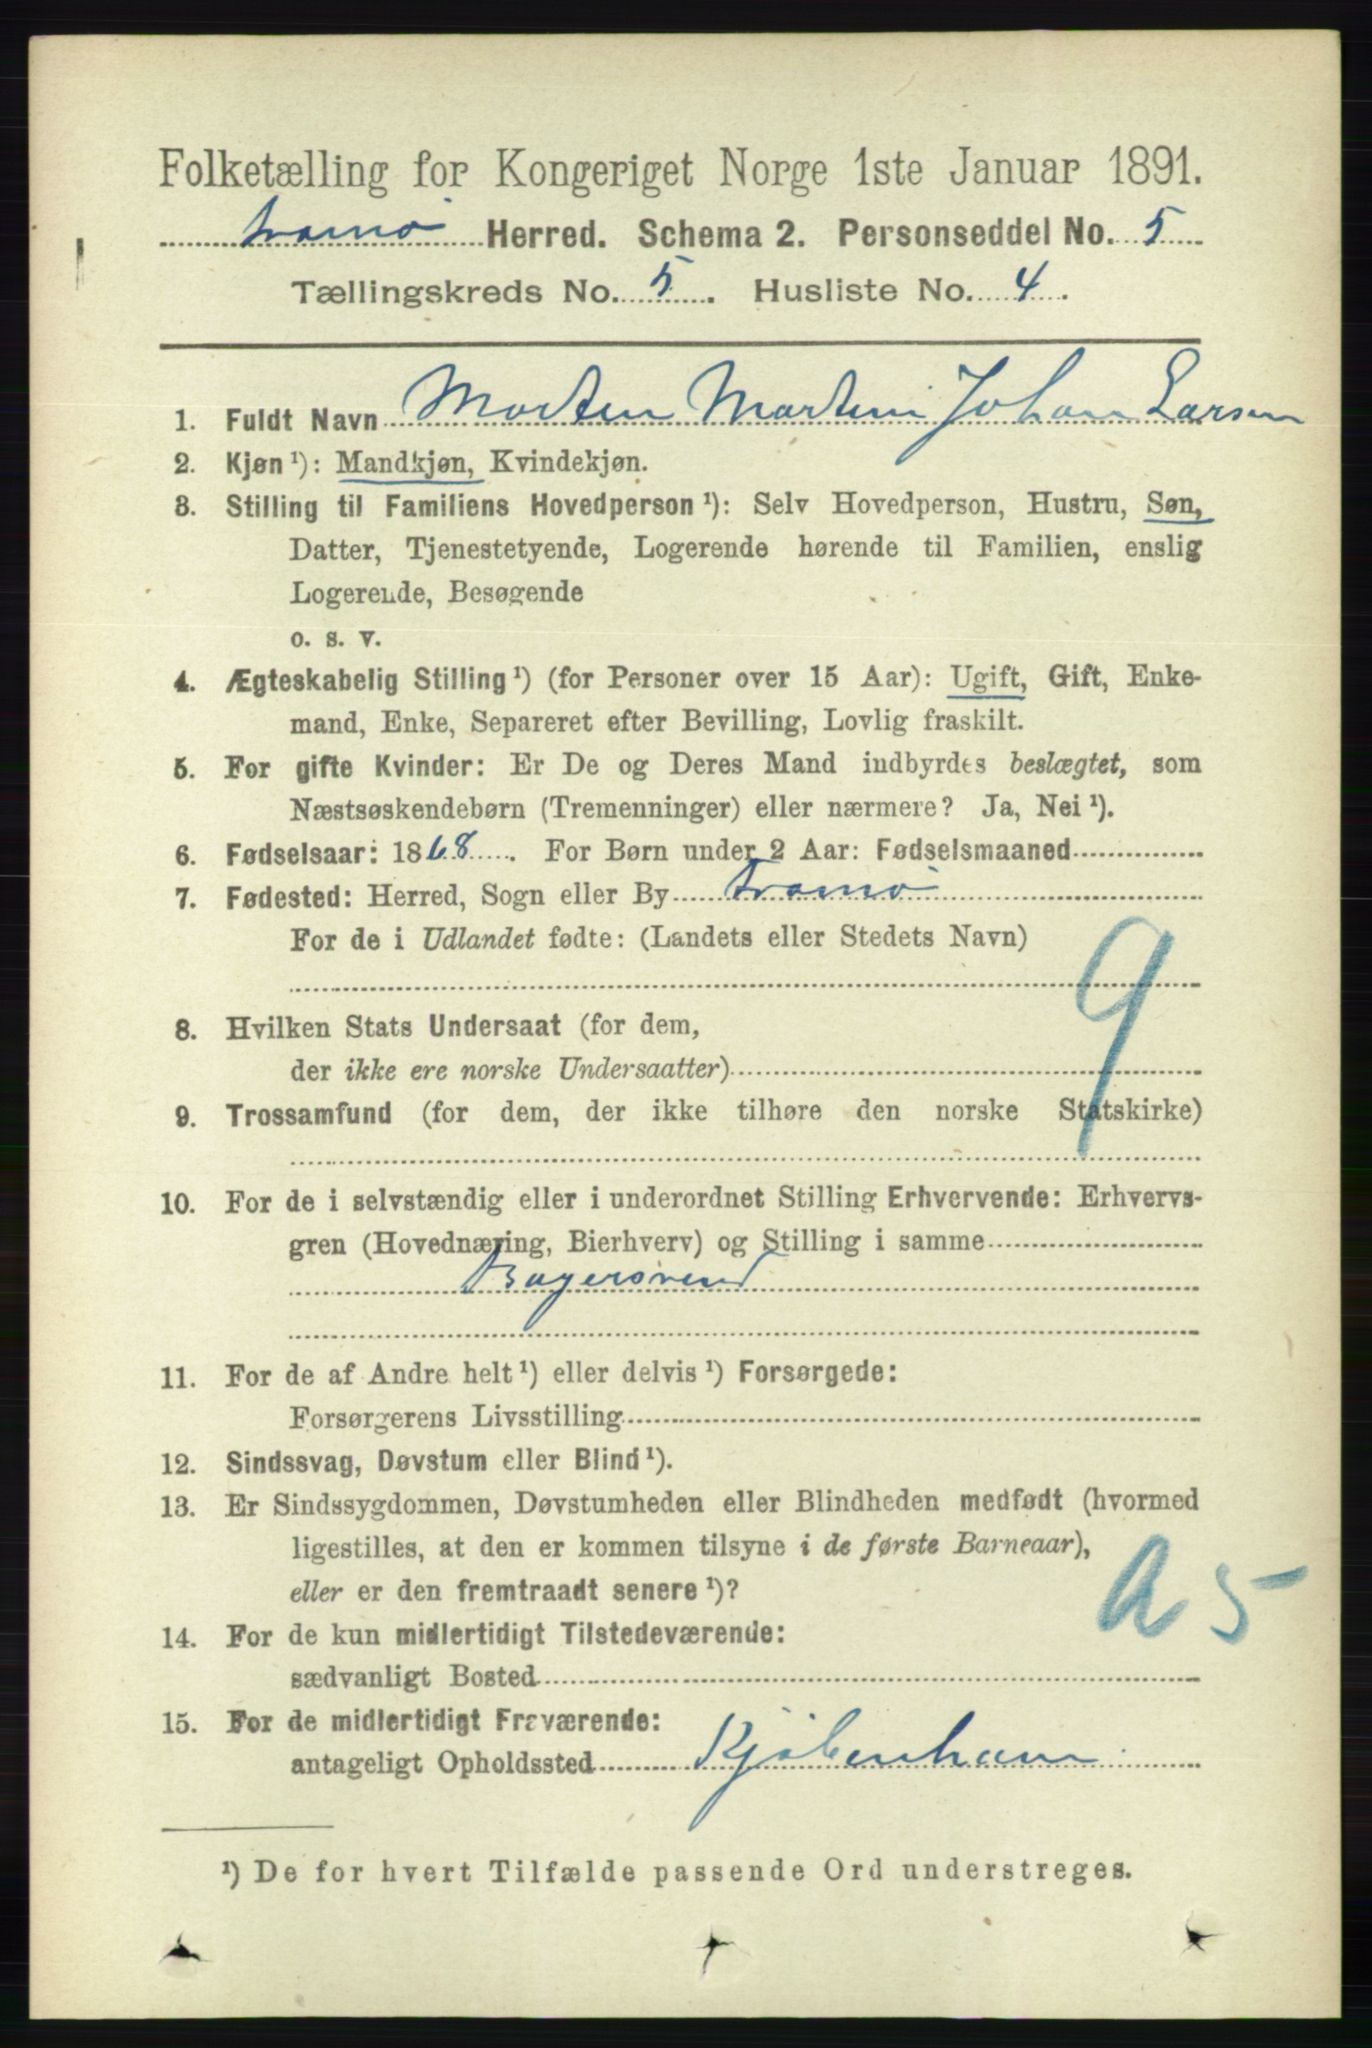 Folketælling for Kongeriget Norge 1ste Januar 1891.
Tromø Herred. Schema 2. Personseddel No. 5
Tællingskreds No. 5. Husliste No. 4.
1. Fuldt Navn Morten Martini Johan Larsen
2. Kjøn ¹): Mandkjøn, Kvindekjøn.
3. Stilling til Familiens Hovedperson ¹): Selv Hovedperson, Hustru, Søn,
Datter, Tjenestetyende, Logerende hørende til Familien, enslig
Logerende, Besøgende
o. s. v.
4. Ægteskabelig Stilling ¹) (for Personer over 15 Aar): Ugift, Gift, Enke-
mand, Enke, Separeret efter Bevilling, Lovlig fraskilt.
5. For gifte Kvinder: Er De og Deres Mand indbyrdes beslægtet, som
Næstsøskendebørn (Tremenninger) eller nærmere? Ja, Nei ¹).
6. Fødselsaar: 1868. For Børn under 2 Aar: Fødselsmaaned
7. Fødested: Herred, Sogn eller By Tromø
For de i Udlandet fødte: (Landets eller Stedets Navn)
9
8. Hvilken Stats Undersaat (for dem,
der ikke ere norske Undersaatter)
9. Trossamfund (for dem, der ikke tilhøre den norske Statskirke)
10. For de i selvstændig eller i underordnet Stilling Erhvervende: Erhvervs-
gren (Hovednæring, Bierhverv) og Stilling i samme
Bagersvend
11. For de af Andre helt ¹) eller delvis ¹) Forsørgede:
Forsørgerens Livsstilling
12. Sindssvag, Døvstum eller Blind ¹).
13. Er Sindssygdommen, Døvstumheden eller Blindheden medfødt (hvormed
ligestilles, at den er kommen tilsyne i de første Barneaar),
eller er den fremtraadt senere ¹)?
a 5
14. For de kun midlertidigt Tilstedeværende:
sædvanligt Bosted
15. For de midlertidigt Fraværende:
antageligt Opholdssted Kjøbenhavn.
¹) De for hvert Tilfælde passende Ord understreges.